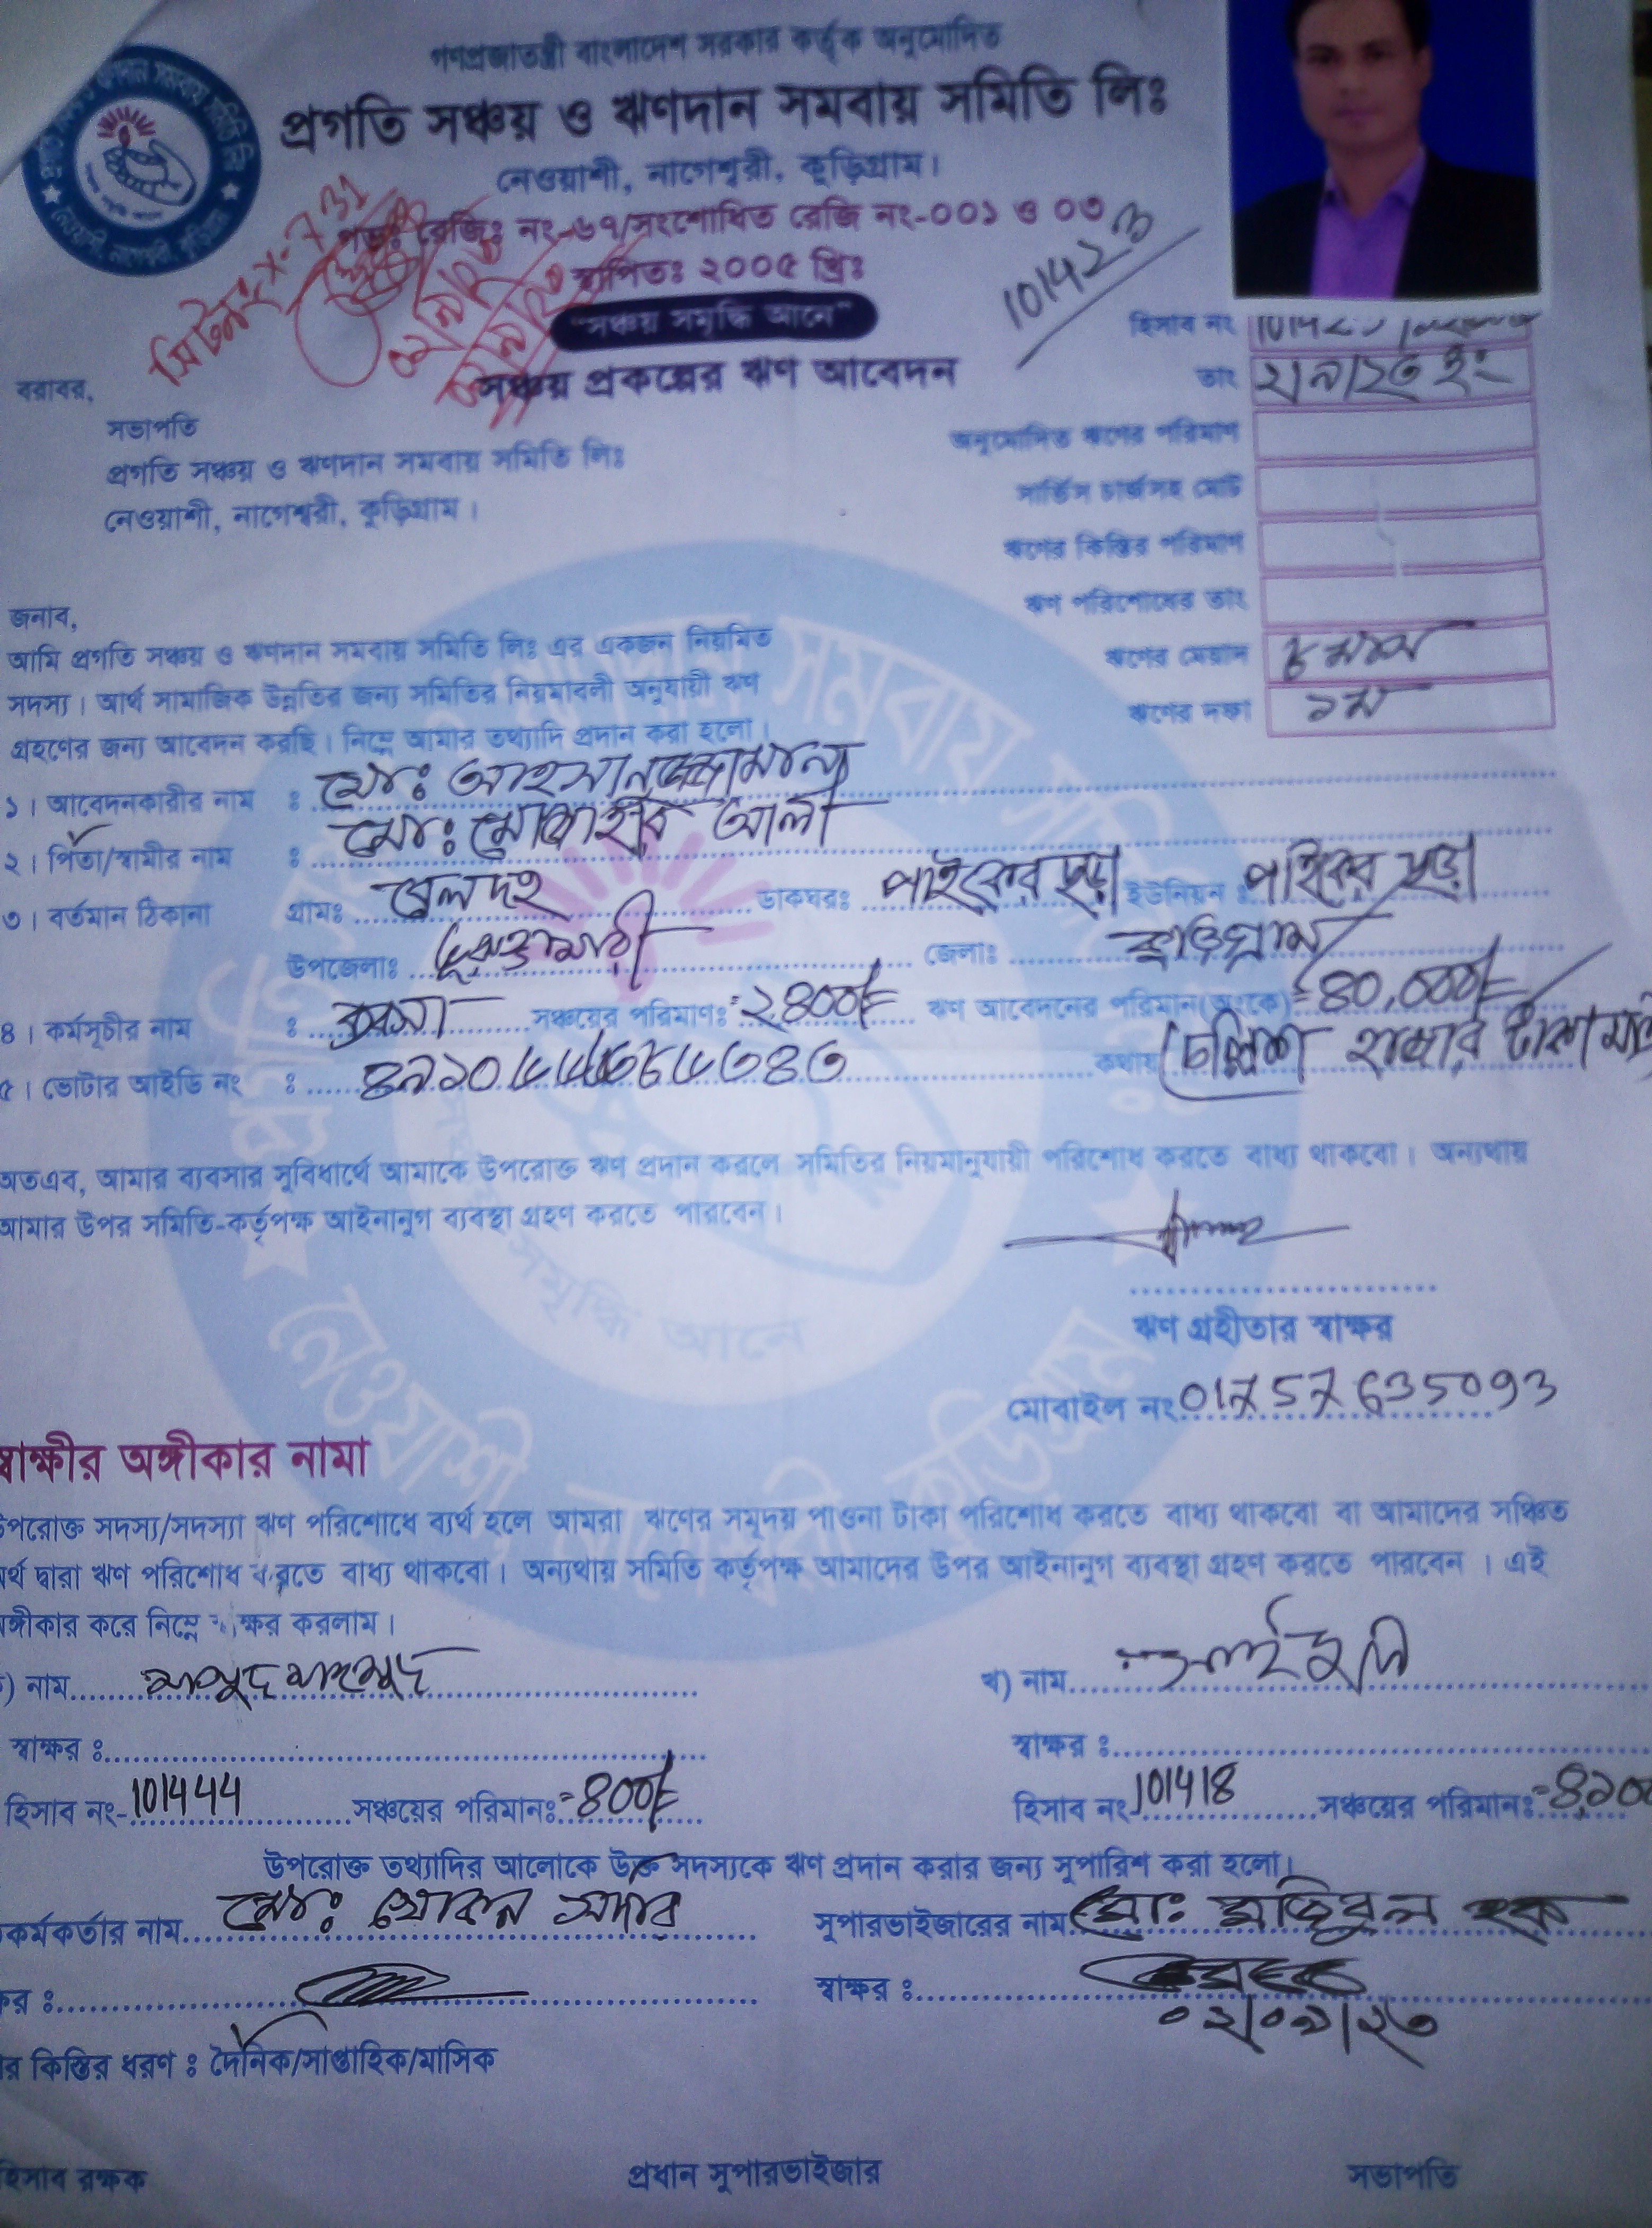 গণপ্রজাতন্ত্রী বাংলাদেশ সরকার কর্তৃক অনুমোদিত
প্রগতি সঞ্চয় ও ঋণদান সমবায় সমিতি লিঃ
নেওয়াশী, নাগেশ্বরী, কুড়িগ্রাম।
গভঃ রেজিঃ নং-৬৭/সংশোধিত রেজি নং-০০১ ও ০৩
স্থাপিতঃ ২০০৫ খ্রিঃ
"সঞ্চয় সমৃদ্ধি আনে"
সঞ্চয় প্রকল্পের ঋণ আবেদন
হিসাব নং
তাং ২/৯/২৩ ইং
অনুমোদিত ঋণের পরিমাণ
সার্ভিস চার্জসহ মোট
ঋণের কিস্তির পরিমাণ
ঋণ পরিশোধের তাং
ঋণের মেয়াদ ৬ মাস
ঋণের দফা ১ম
বরাবর,
সভাপতি
প্রগতি সঞ্চয় ও ঋণদান সমবায় সমিতি লিঃ
নেওয়াশী, নাগেশ্বরী, কুড়িগ্রাম।
জনাব,
আমি প্রগতি সঞ্চয় ও ঋণদান সমবায় সমিতি লিঃ এর একজন নিয়মিত
সদস্য। আর্থ সামাজিক উন্নতির জন্য সমিতির নিয়মাবলী অনুযায়ী ঋণ
গ্রহণের জন্য আবেদন করছি। নিম্নে আমার তথ্যাদি প্রদান করা হলো।
১। আবেদনকারীর নাম : মোঃ আহসানুজ্জামান
২। পিতা/স্বামীর নাম : মোঃ আলী
৩। বর্তমান ঠিকানা গ্রামঃ বেলদহ ডাকঘরঃ পাইকের ছড়া ইউনিয়ন : পাইকের ছড়া
উপজেলাঃ ভূরুঙ্গামারী জেলাঃ কুড়িগ্রাম
৪। কর্মসূচীর নাম : সঞ্চয়ের পরিমাণঃ =২৪০০/= ঋণ আবেদনের পরিমান(অংকে) =৪০,০০০/=
৫। ভোটার আইডি নং : কথায় চল্লিশ হাজার টাকা মাত্র
অতএব, আমার ব্যবসার সুবিধার্থে আমাকে উপরোক্ত ঋণ প্রদান করলে সমিতির নিয়মানুযায়ী পরিশোধ করতে বাধ্য থাকবো। অন্যথায়
আমার উপর সমিতি-কর্তৃপক্ষ আইনানুগ ব্যবস্থা গ্রহণ করতে পারবেন।
ঋণ গ্রহীতার স্বাক্ষর
মোবাইল নং 01757635093
স্বাক্ষীর অঙ্গীকার নামা
উপরোক্ত সদস্য/সদস্যা ঋণ পরিশোধে ব্যর্থ হলে আমরা ঋণের সমূদয় পাওনা টাকা পরিশোধ করতে বাধ্য থাকবো বা আমাদের সঞ্চিত
অর্থ দ্বারা ঋণ পরিশোধ করতে বাধ্য থাকবো। অন্যথায় সমিতি কর্তৃপক্ষ আমাদের উপর আইনানুগ ব্যবস্থা গ্রহণ করতে পারবেন । এই
অঙ্গীকার করে নিম্নে স্বাক্ষর করলাম।
) নাম মাসুদ মাহমুদ খ) নাম
স্বাক্ষর : স্বাক্ষর :
হিসাব নং- 101444 সঞ্চয়ের পরিমানঃ =৪০০/= হিসাব নং 101418 সঞ্চয়ের পরিমানঃ =৪১০০
উপরোক্ত তথ্যাদির আলোকে উক্ত সদস্যকে ঋণ প্রদান করার জন্য সুপারিশ করা হলো।
কর্মকর্তার নাম মোঃ খোকন সুপারভাইজারের নাম মোঃ হক
ক্ষর : স্বাক্ষর :
০২/০৯/২৩
র কিস্তির ধরণ : দৈনিক/সাপ্তাহিক/মাসিক
হিসাব রক্ষক প্রধান সুপারভাইজার সভাপতি